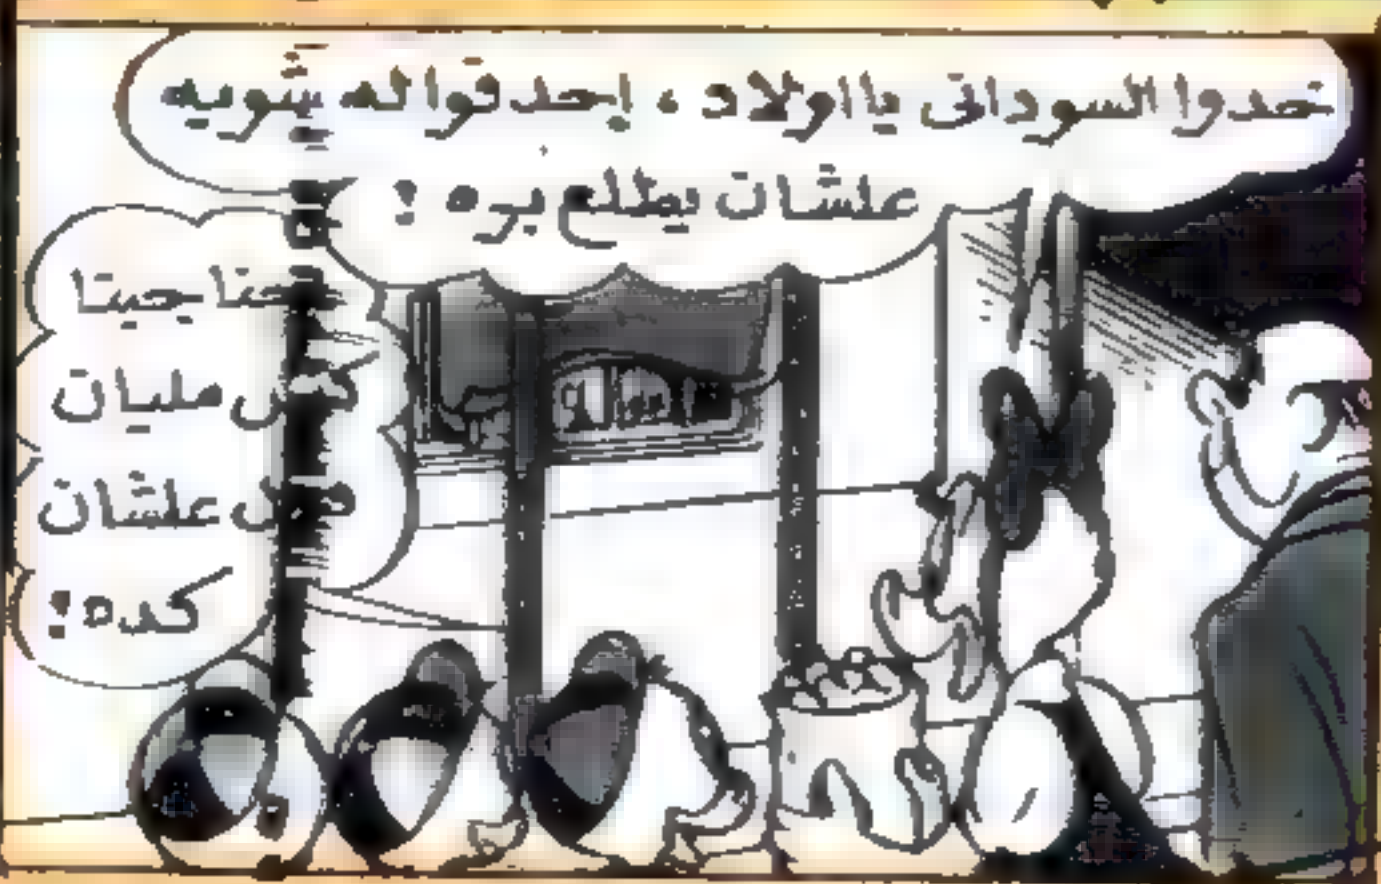 خدوا السودانى يا اولاد ، احدفوا له شويه
علشان يطلع بره !
احنا جيبنا
كيس مليان
علشان
كده !